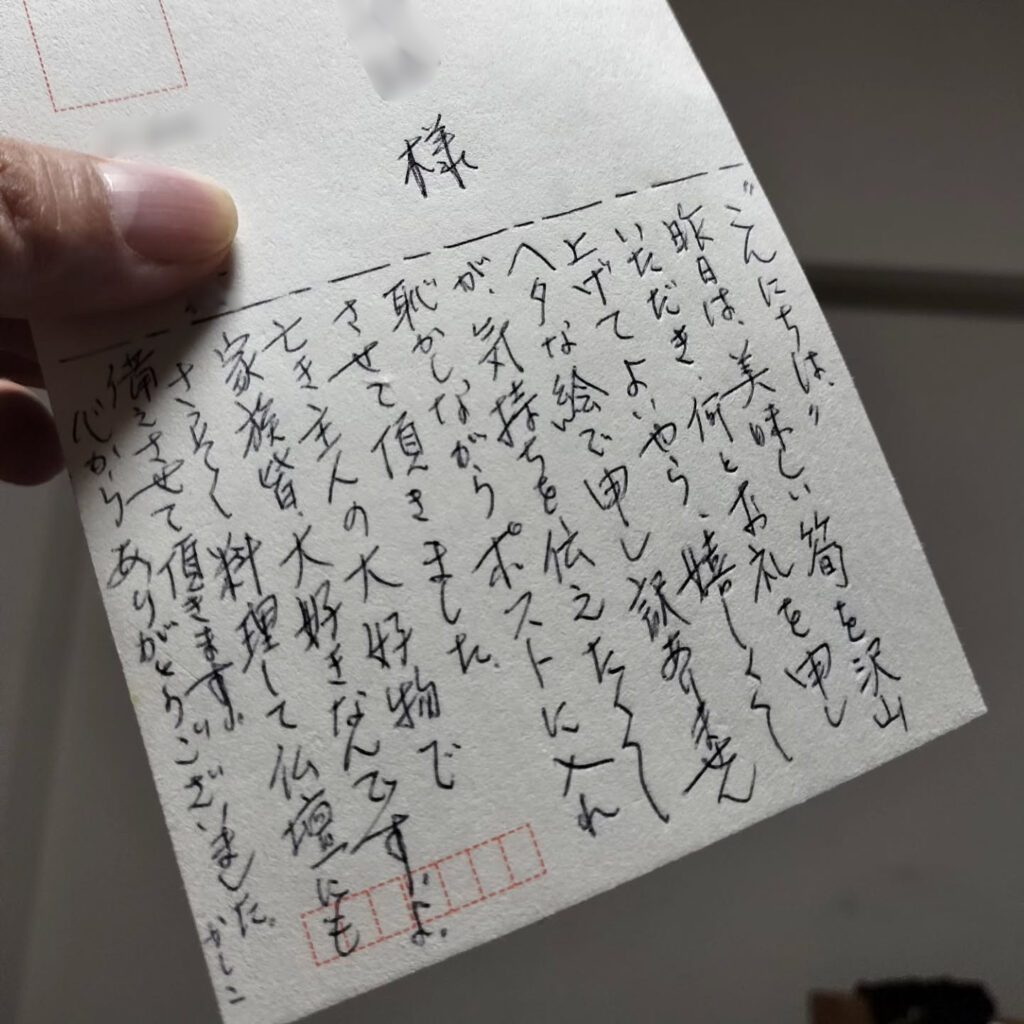 様
"こんにちは、"
昨日は、美味しい筍を沢山
いただき、何とお礼を申し
上げてよいやら、嬉しくて
ヘタな絵で申し訳ありません
が、気持ちを伝えたくて
恥かしながらポストに入れ
させて頂きました。
亡き主人の大好物で
家族皆、大好きなんですよ。
さっそく料理して仏壇にも
備えさせて頂きます。
心からありがとうございました。
かしこ